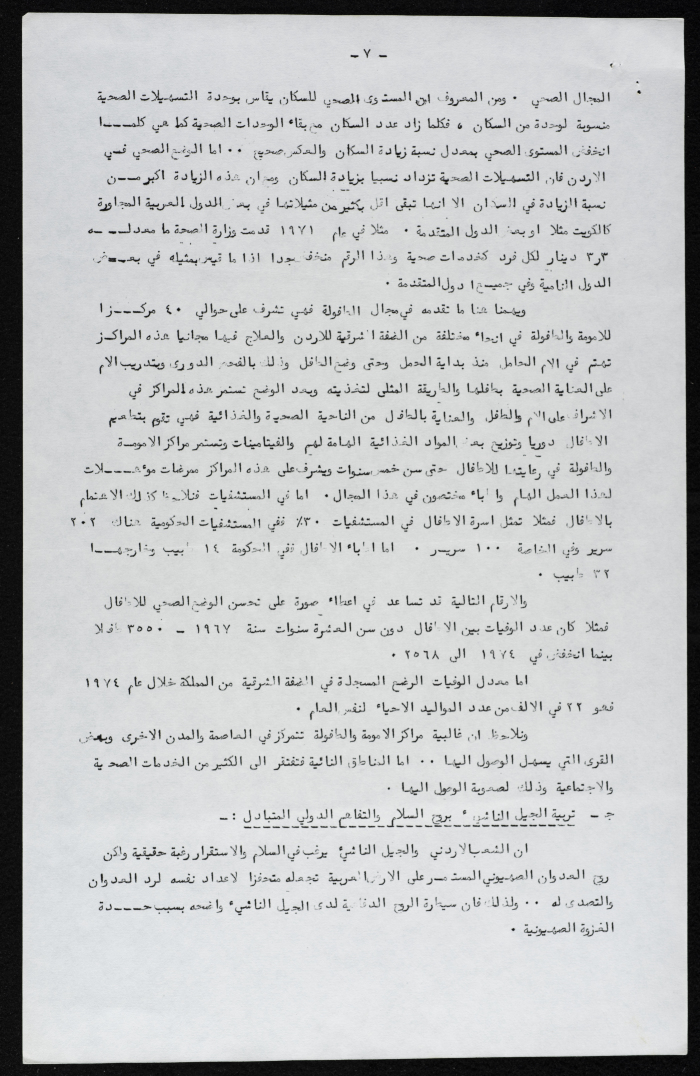 - ٧ -
المجال الصحي ٠ ومن المعروف ان المستوى الصحي للسكان يقاس بوحدة التسهيلات الصحية
منسوبة لوحدة من السكان ، فكلما زاد عدد السكان مع بقاء الوحدات الصحية كما هي كلمـــا
انخفض المستوى الصحي بمعدل نسبة زيادة السكان والعكس صحيح ٠٠ اما الوضع الصحي فـي
الاردن فان التسهيلات الصحية تزداد نسبيا بزيادة السكان ومع ان هذه الزيادة اكبر مـــن
نسبة الزيادة في السكان الا انها تبقى اقل بكثير من مثيلاتها في بعض الدول العربية المجاورة
كالكويت مثلا او بعض الدول المتقدمة ٠ مثلا في عام ١٩٧١ قدمت وزارة الصحة ما معدلـــه
٣ر٣ دينار لكل فرد كخدمات صحية وهذا الرقم منخفض جدا اذا ما قيس بمثيله في بعـــض
الدول النامية وفي جميـع دول المتقدمة ٠
ويهمنا هنا ما تقدمه في مجال الطفولة فهي تشرف على حوالي ٤٠ مركـــزا
للامومة والطفولة في انحاء مختلفة من الضفة الشرقية للاردن والعلاج فيها مجانيا هذه المراكـز
تهتم في الام الحامل منذ بداية الحمل وحتى وضع الطفل وذلك بالفحص الدوري وبتدريب الام
على العناية الصحية بطفلها والطريقة المثلى لتغذيته وبعد الوضع تستمر هذه المراكز في
الاشراف على الام والطفل والعناية بالطفل من الناحية الصحية والغذائية فهي تقوم بتطعيم
الاطفال دوريا وتوزيع بعض المواد الغذائية الهامة لهم والفيتامينات وتستمر مراكز الامومـة
والطفولة في رعايتها للاطفال حتى سن خمس سنوات ويشرف على هذه المراكز ممرضات مؤهـــلات
لهذا العمل الهام واطباء مختصون في هذا المجال ٠ اما في المستشفيات فنلاحظ كذلك الاهتمام
بالاطفال فمثلا تمثل اسرة الاطفال في المستشفيات ٣٠٪ ففي المستشفيات الحكومية هناك ٢٠٢
سرير وفي الخاصة ١٠٠ سريـر ٠ اما اطباء الاطفال ففي الحكومة ١٤ طبيب وخارجهـــا
٣٢ طبيب ٠
والارقام التالية قد تساعد في اعطاء صورة على تحسن الوضع الصحي للاطفال
فمثلا كان عدد الوفيات بين الاطفال دون سن العشرة سنوات سنة ١٩٦٧ - ٣٥٥٠ طفلا
بينما انخفض في ١٩٧٤ الى ٢٥٦٨ ٠
اما معدل الوفيات الرضع المسجلة في الضفة الشرقية من المملكة خلال عام ١٩٧٤
فهو ٢٢ في الالف من عدد المواليد الاحياء لنفس العام ٠
ونلاحظ ان غالبية مراكز الامومة والطفولة تتمركز في العاصمة والمدن الاخرى وبعض
القرى التي يسهل الوصول اليها ٠٠ اما المناطق النائية فتفتقر الى الكثير من الخدمات الصحية
والاجتماعية وذلك لصعوبة الوصول اليها ٠
ج - تربية الجيل الناشىء بروح السلام والتفاهم الدولي المتبادل :-
ان الشعب الاردني والجيل الناشىء يرغب في السلام والاستقرار رغبة حقيقية ولكن
روح العدوان الصهيوني المستمـر على الارض العربية تجعله متحفزا لاعداد نفسه لرد العدوان
والتصدي له ٠٠ ولذلك فان سيطرة الروح الدفاعية لدى الجيل الناشىء واضحه بسبب حـــدة
الغزوة الصهيونية ٠